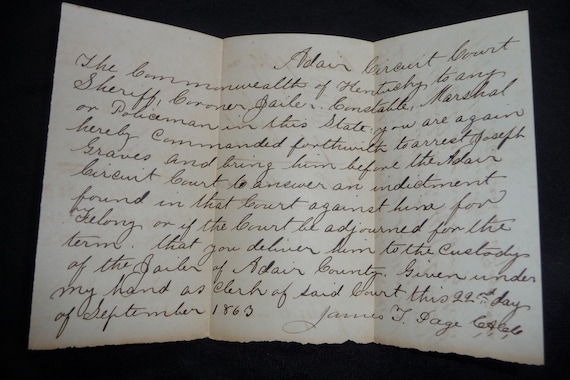 Adair Circuit Court
The Commonwealth of Kentucky to any
Sheriff, Coroner, Jailer, Constable, Marshal
or Policeman in this State: you are again
hereby Commanded forthwith to arrest Joseph
Graves and bring him before the Adair
Circuit Court to answer an indictment
found in that Court against him for
Felony or if the Court be adjourned for the
term. that you deliver him to the Custody
of the Jailer of Adair County. Given under
my hand as Clerk of said Court this 22nd day
of September 1863 James T. Page